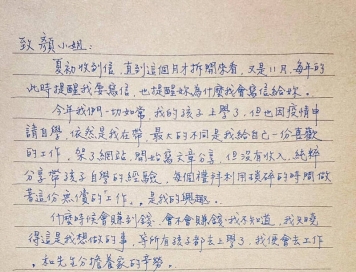 致顏小姐：
夏初收到信，直到這個月才拆開來看，又是11月，每年的
此時提醒我會寫信，也提醒妳為什麼我會寫信給妳。
今年我們一切如常，我的孩子上學了，但也因疫情申
請自學，依然是我在帶，最大的不同是我給自己一份喜歡
的工作，架了網站，開始寫文章分享，但沒有收入，純粹
分享帶孩子自學的經驗，每個禮拜利用瑣碎的時間做
著這份無償的"工作"，是我的興趣。
什麼時候會賺到錢，會不會賺錢，我不知道，我只曉
得這是我想做的事，等所有孩子都去上學了，我便會去工作
，和先生分擔養家的辛勞。